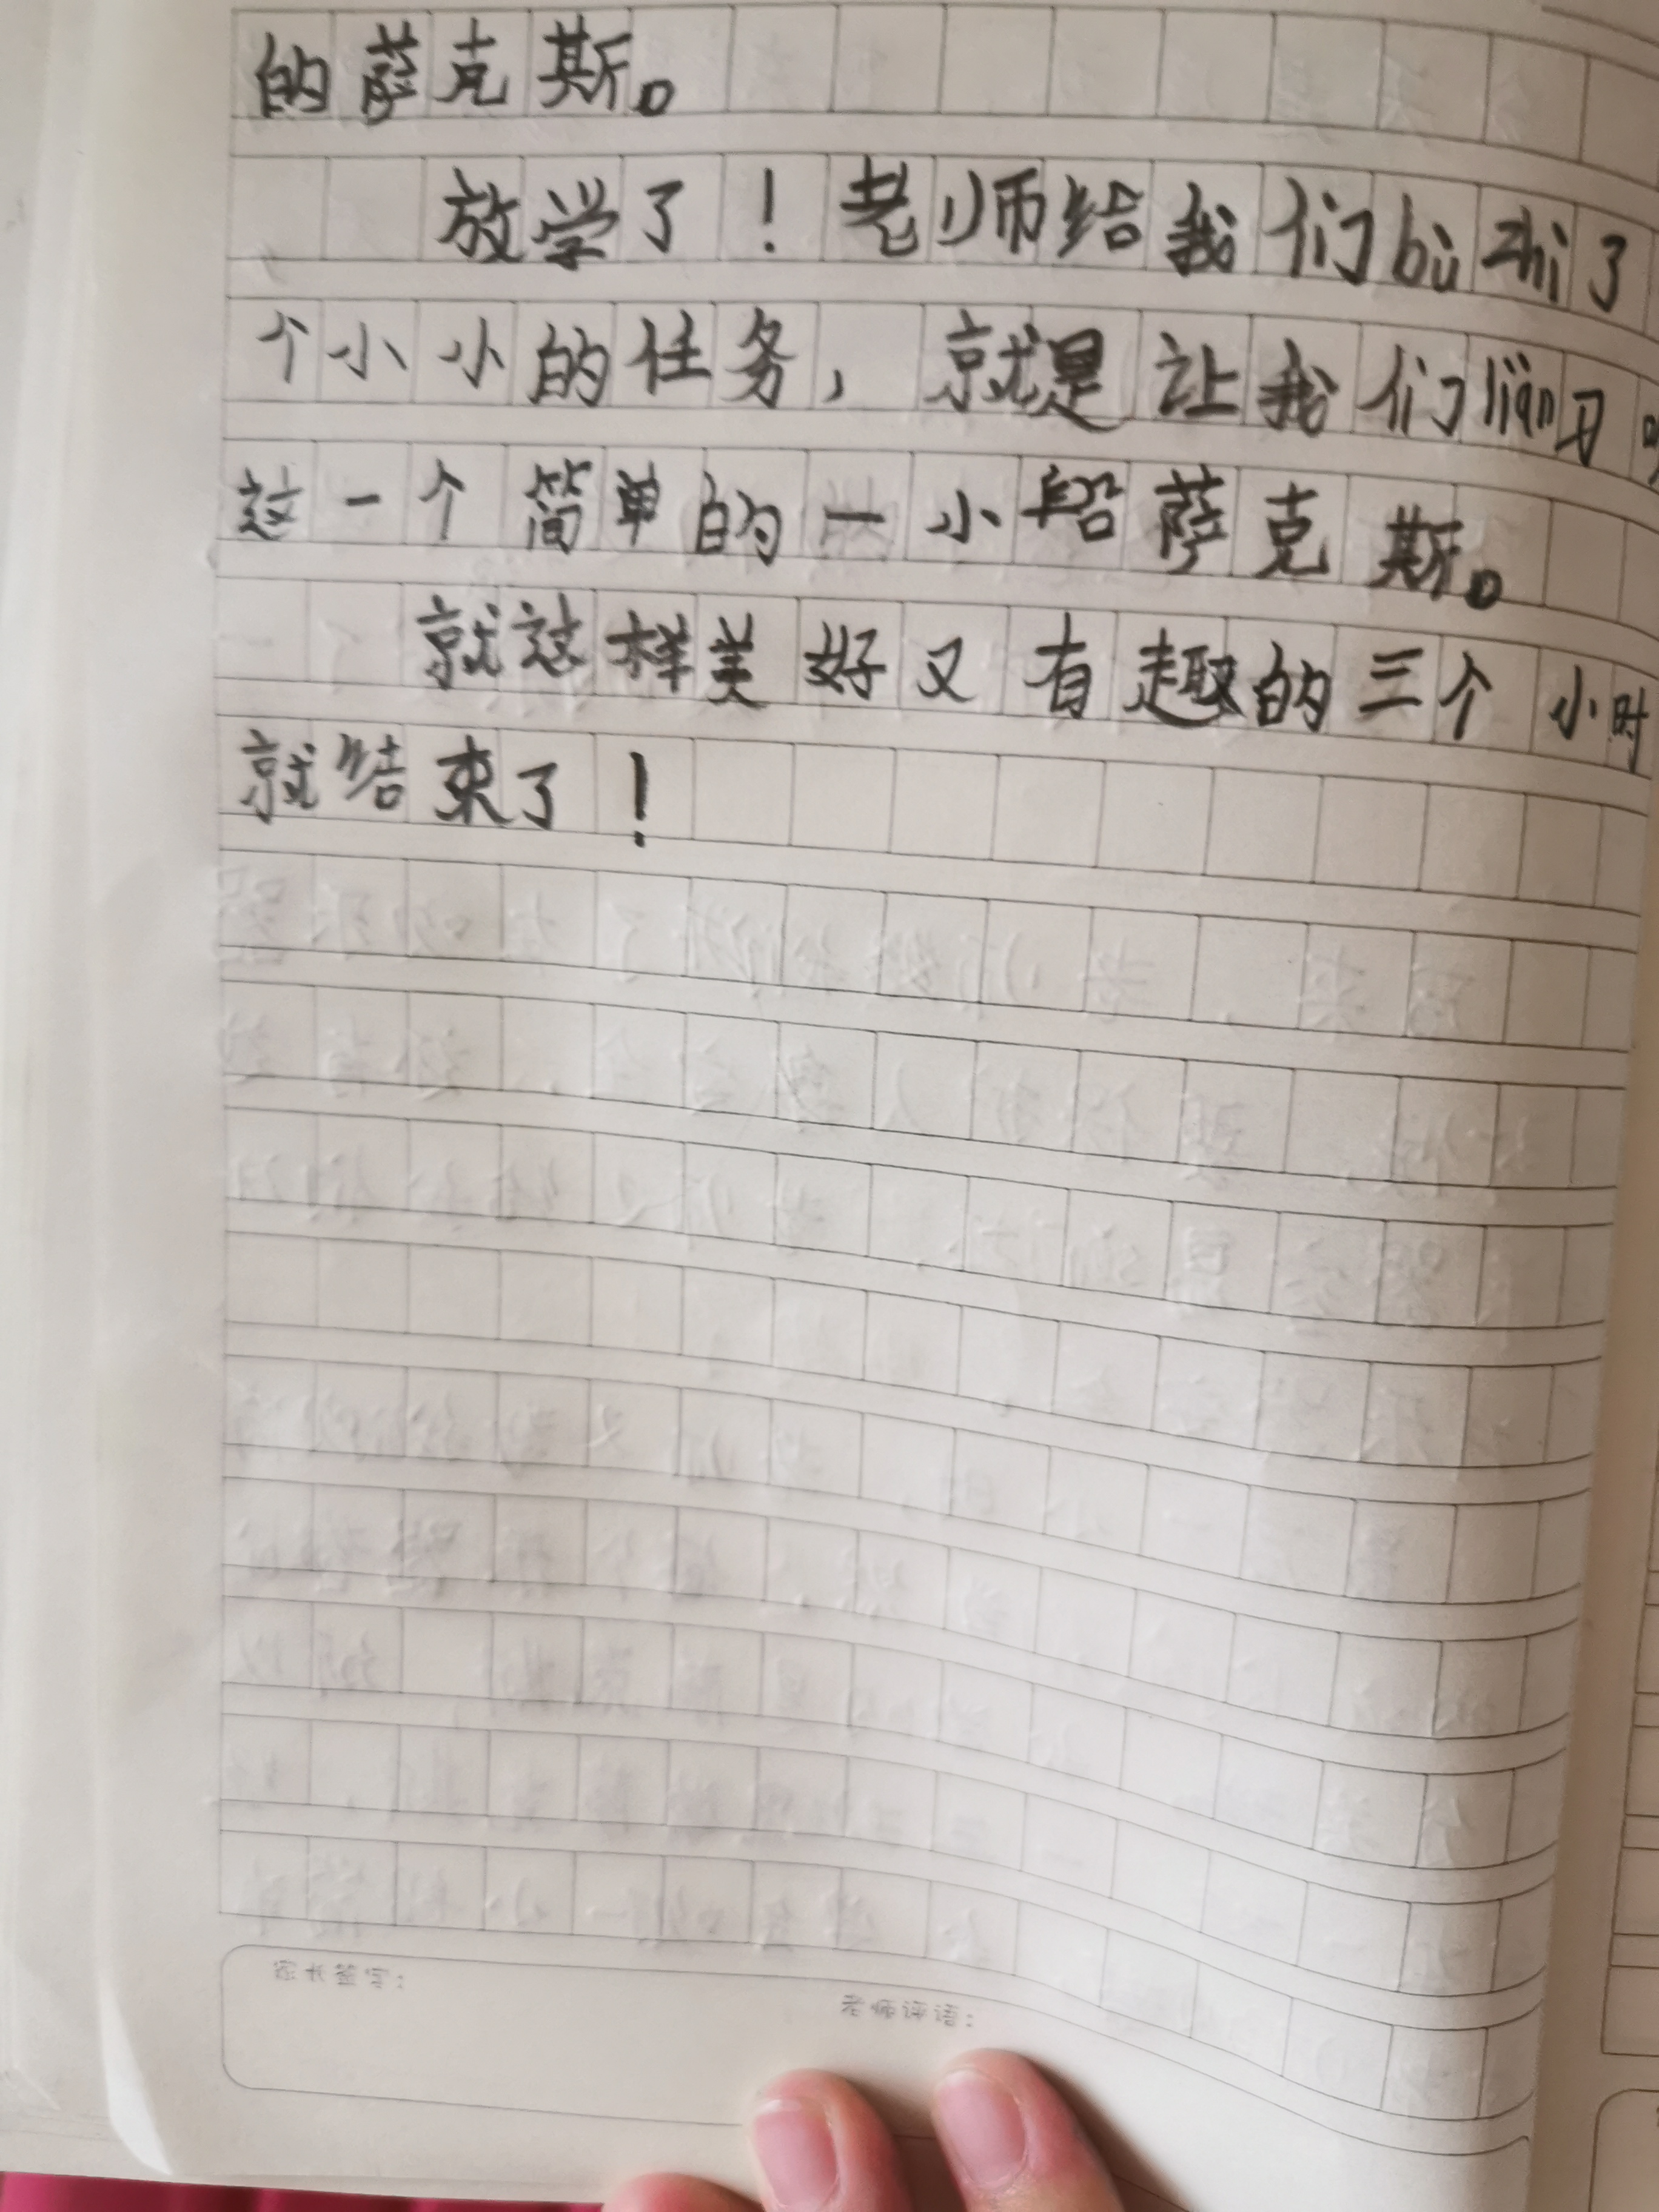 的萨克斯。
放学了！老师给我们bù zhì了
个小小的任务，就是让我们liàn习
这一个简单的一小段萨克斯。
就这样美好又有趣的三个小时
就结束了！
家长签字：
老师评语：